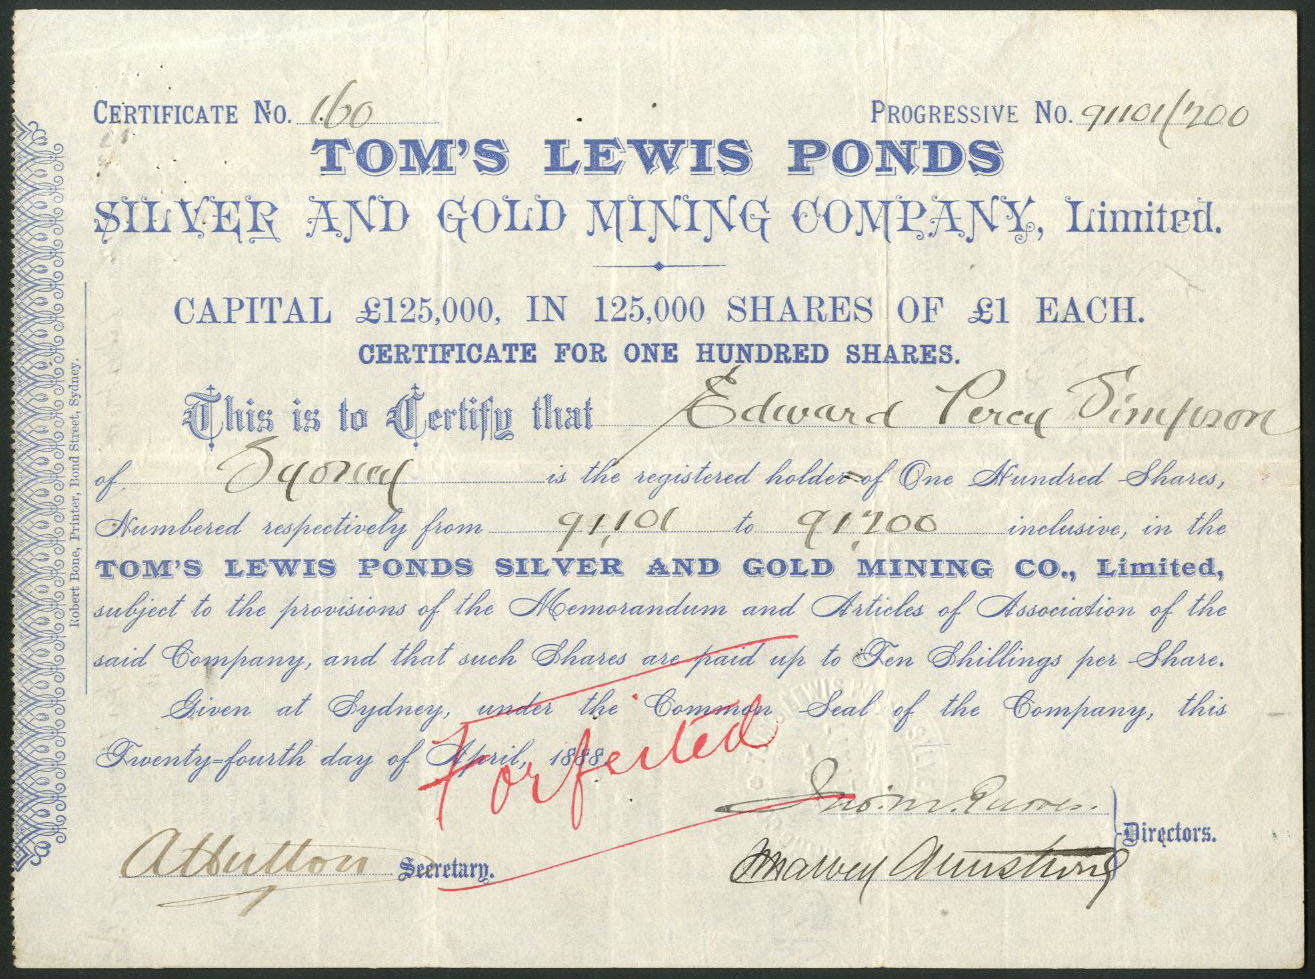 CERTIFICATE NO. 160 PROGRESSIVE NO. 91101/200
TOM'S LEWIS PONDS
SILVER AND GOLD MINING COMPANY, Limited.
CAPITAL £125,000, IN 125,000 SHARES OF £1 EACH.
CERTIFICATE FOR ONE HUNDRED SHARES.
This is to Certify that Edward Percy Simpson
of Sydney is the registered holder of One Hundred Shares,
Numbered respectively from 91,101 to 91,200 inclusive, in the
TOM'S LEWIS PONDS SILVER AND GOLD MINING CO., Limited,
subject to the provisions of the Memorandum and Articles of Association of the
said Company, and that such Shares are paid up to Ten Shillings per Share.
Given at Sydney, under the Common Seal of the Company, this
Twenty=fourth day of April, 1888.
Forfeited
Directors.
AHutton Secretary.
Armstrong
Robert Bone, Printer, Bond Street, Sydney.